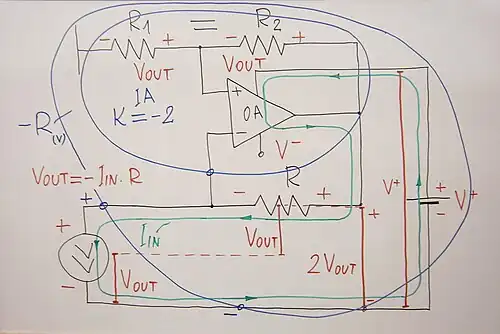 =
R1 R2
- + - +
VOUT VOUT
IA
K = -2
+
OA
-
V-
-R(V)
VOUT = -IIN. R
+
- R +
V+
V+
+
-
+
IIN
VOUT
+
2VOUT
-
VOUT
-
-